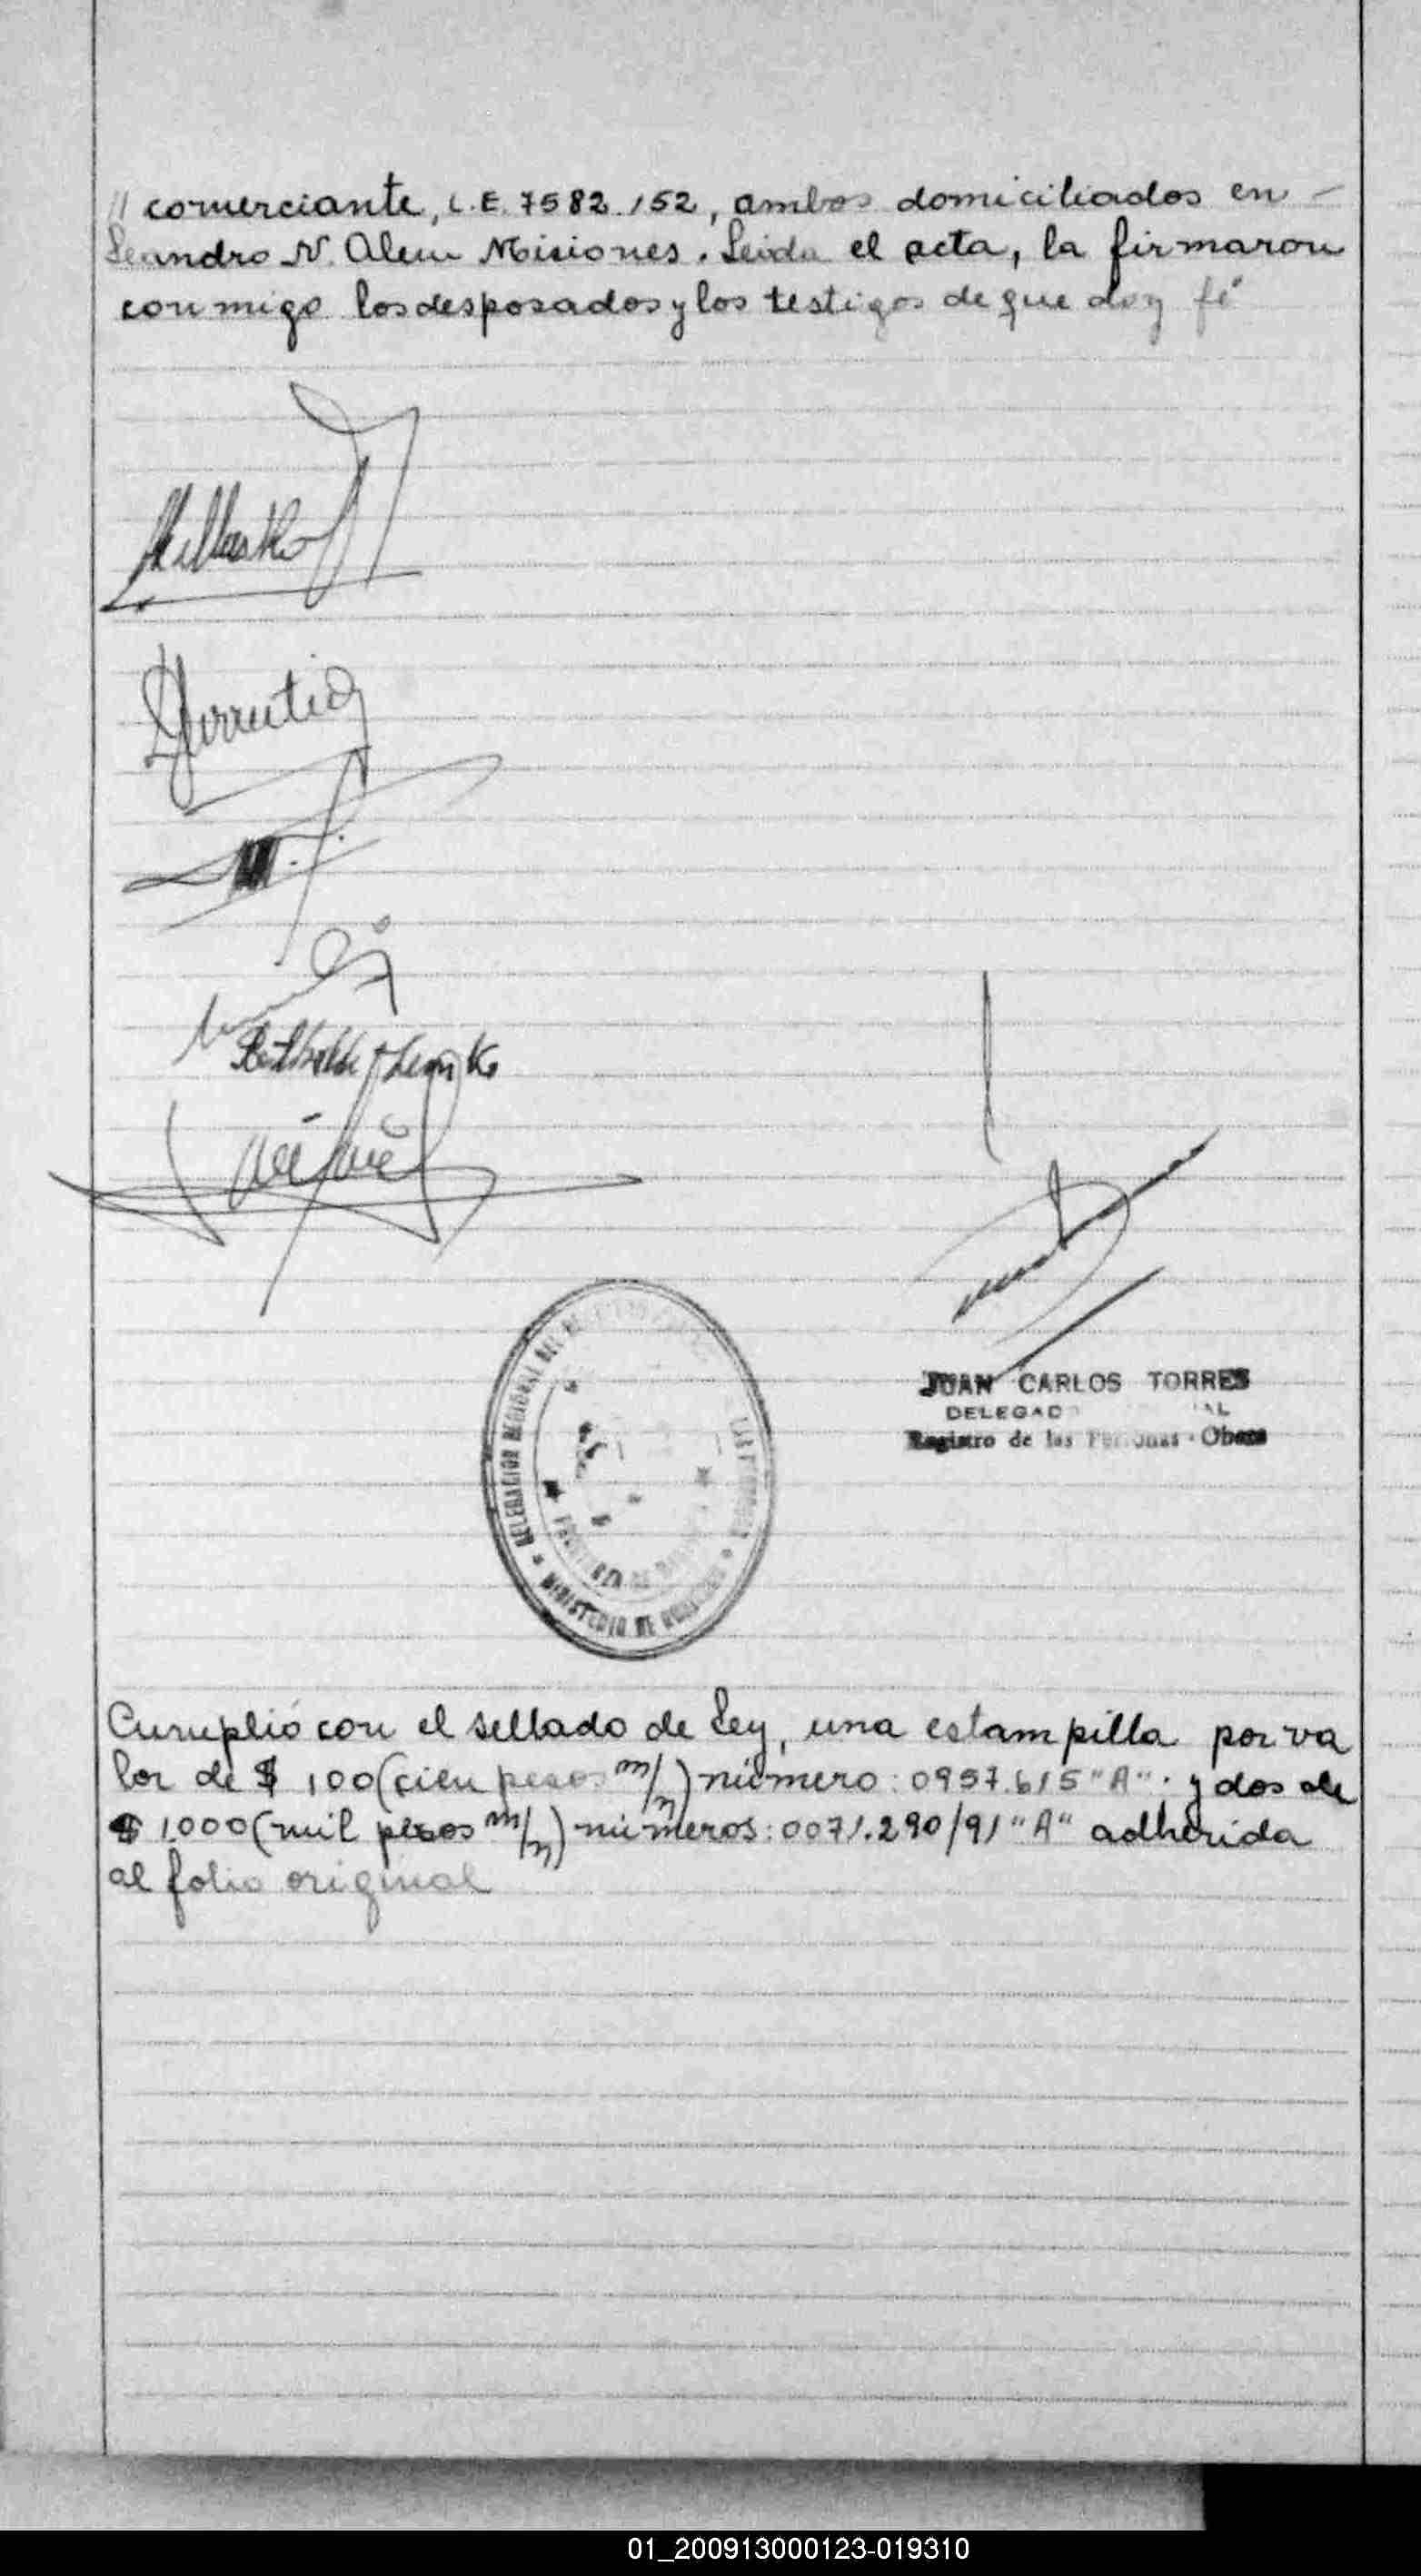 // comerciante, L.E. 7582.152, ambos domiciliados en -
Leandro N. Alem Misiones. Leida el acta, la firmaron
conmigo los desposados y los testigos de que doy fé
Urrutia
JUAN CARLOS TORRES
DELEGADO AL
Registro de las Personas - Obera
DELEGACION REGIONAL DEL
LAS PERSONAS
MINISTERIO DE
Cumplió con el sellado de Ley, una estampilla por va
lor de $ 100 (cien pesos m/n) número: 0957.615 "A". y dos de
$ 1.000 (mil pesos m/n) números: 0071.290/91 "A" adherida
al folio original
01_200913000123-019310